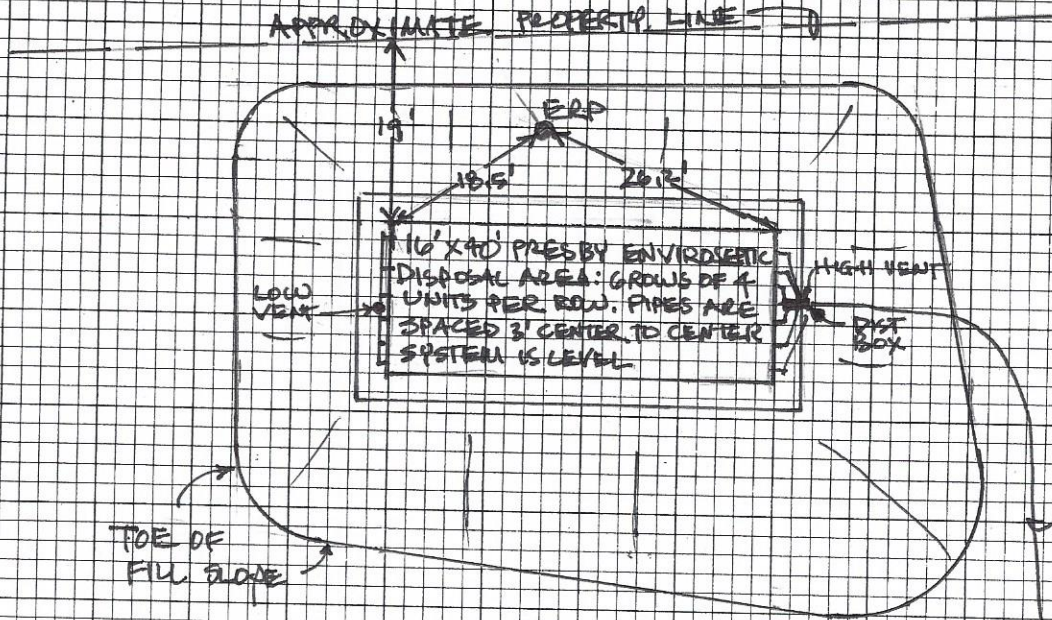 APPROXIMATE PROPERTY LINE
ERP
19'
18.5'
26.2'
16' X 40' PRESBY ENVIROSEPTIC
DISPOSAL AREA: 6 ROWS OF 4
UNITS PER ROW. PIPES ARE
SPACED 3' CENTER TO CENTER
SYSTEM IS LEVEL
HIGH VENT
LOW
VENT
DIST
BOX
TOE OF
FILL SLOPE